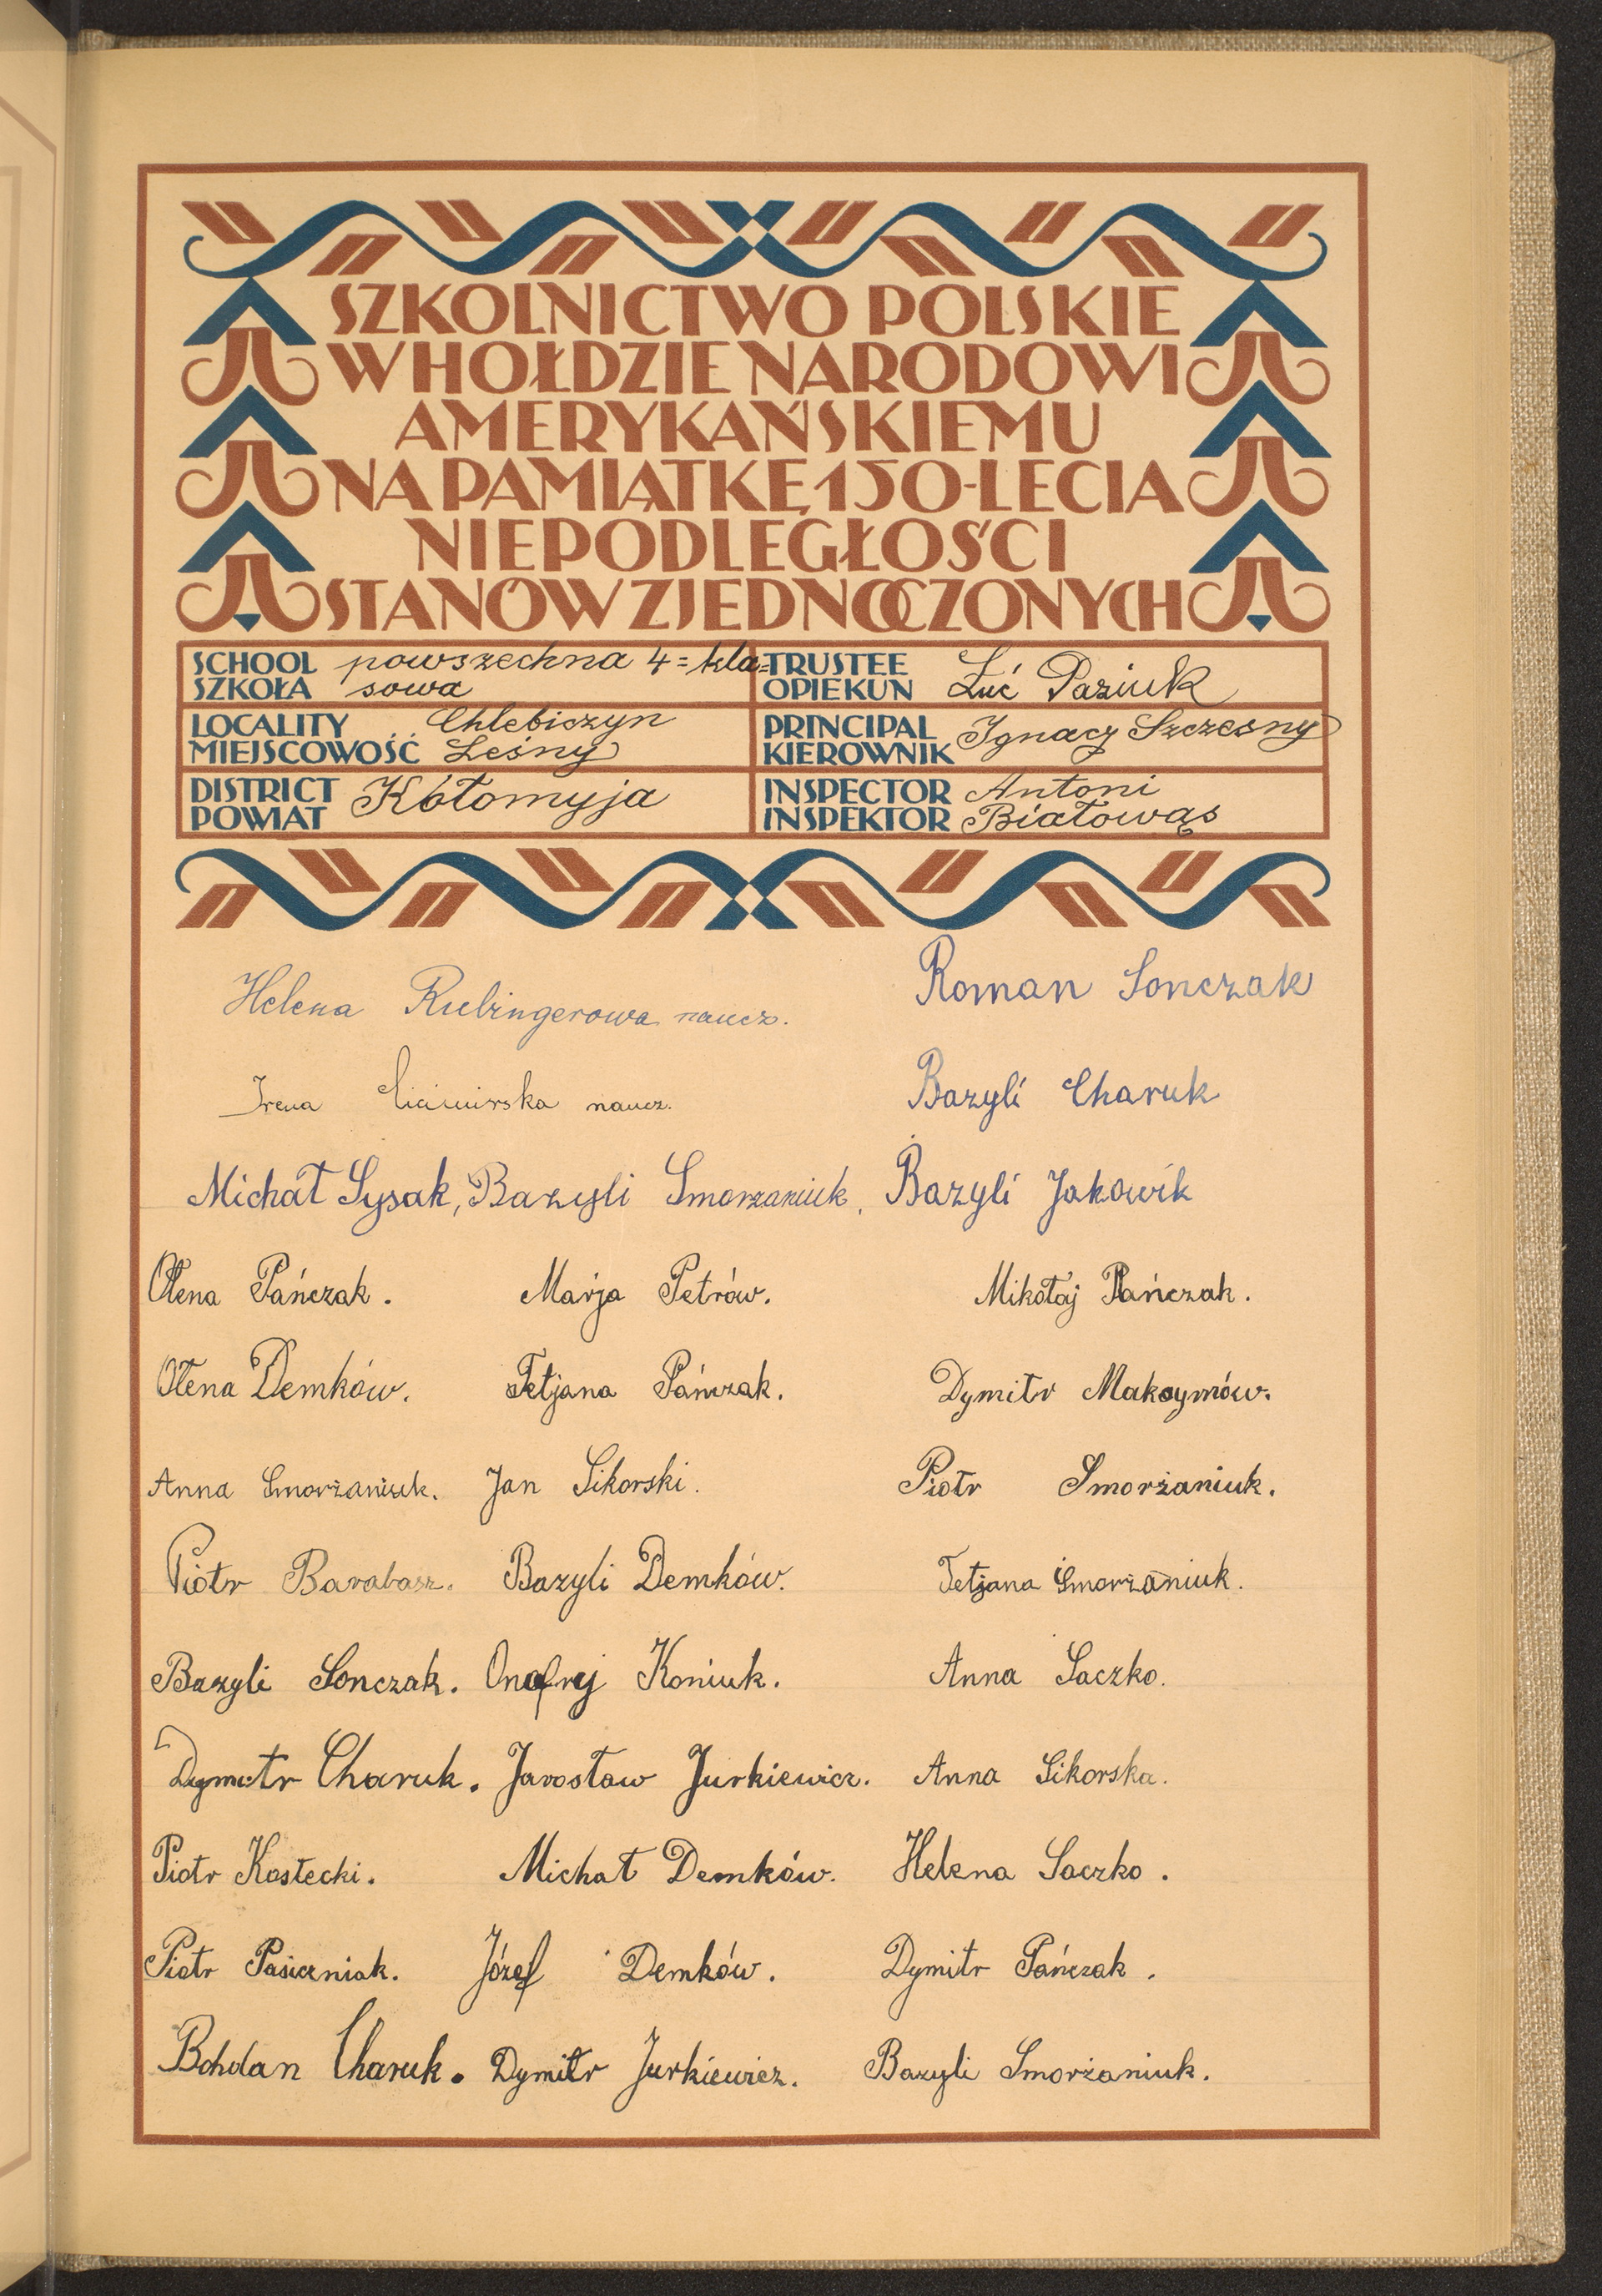 SZKOLNICTWO POLSKIE
W HOŁDZIE NARODOWI
AMERYKAŃSKIEMU
NA PAMIĄTKĘ 150-LECIA
NIEPODLEGŁOŚCI
STANÓW ZJEDNOCZONYCH
SCHOOL SZKOŁA powszechna 4=kla=
sowa
TRUSTEE OPIEKUN Łuć Paziuk
LOCALITY MIEJSCOWOŚĆ Chlebiczyn
Leśny
PRINCIPAL KIEROWNIK Ignacy Szczesny
DISTRICT POWIAT Kołomyja
INSPECTOR INSPEKTOR Antoni
Białowąs
Helena Rubingerowa naucz. Roman Sonczak
Irena naucz. Bazyli Charuk
Michał Sysak, Bazyli Smorzaniuk, Bazyli Jakowik
Ołena Pańczak. Marja Petrów. Mikołaj Pańczak.
Ołena Demków. Tetjana Pańczak. Dymitr Maksymów.
Anna Smorżaniuk. Jan Sikorski. Piotr Smorżaniuk.
Piotr Barabasz. Bazyli Demków. Tetjana Smorżaniuk.
Bazyli Sonczak. Onofrej Koniuk. Anna Saczko.
Dymytr Charuk. Jarosław Jurkiewicz. Anna Sikorska.
Piotr Kostecki. Michał Demków. Helena Saczko.
Piotr Pasieczniak. Józef Demków. Dymitr Pańczak.
Bohdan Charuk. Dymitr Jurkiewicz. Bazyli Smorżaniuk.